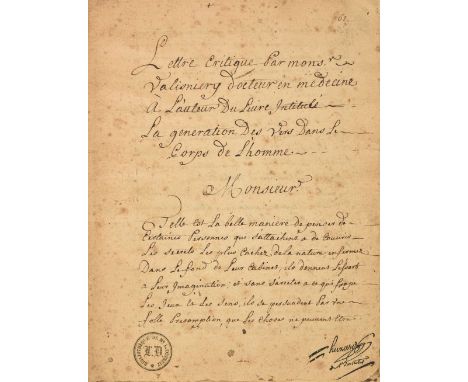 Lettre Critique Par mons.r
Valisniery docteur en médecine
A L'auteur Du Livre Intitulé
La generation Des Vers Dans Le
Corps de L'homme
Monsieur
Telle est La belle manière de penser de
Certaines Personnes qui s'attachent a de Couvrir
Les secrets Les plus Cachez de la nature, enfermez
Dans Le fond de Leur Cabinet, ils donnent L'essort
a Leur Imagination, et sans s'arreter a ce qui frape
Les Yeux et Les Sens, ils se persuadent Par une
folle Presomption, que Les choses ne peuvent Etre
L.D.